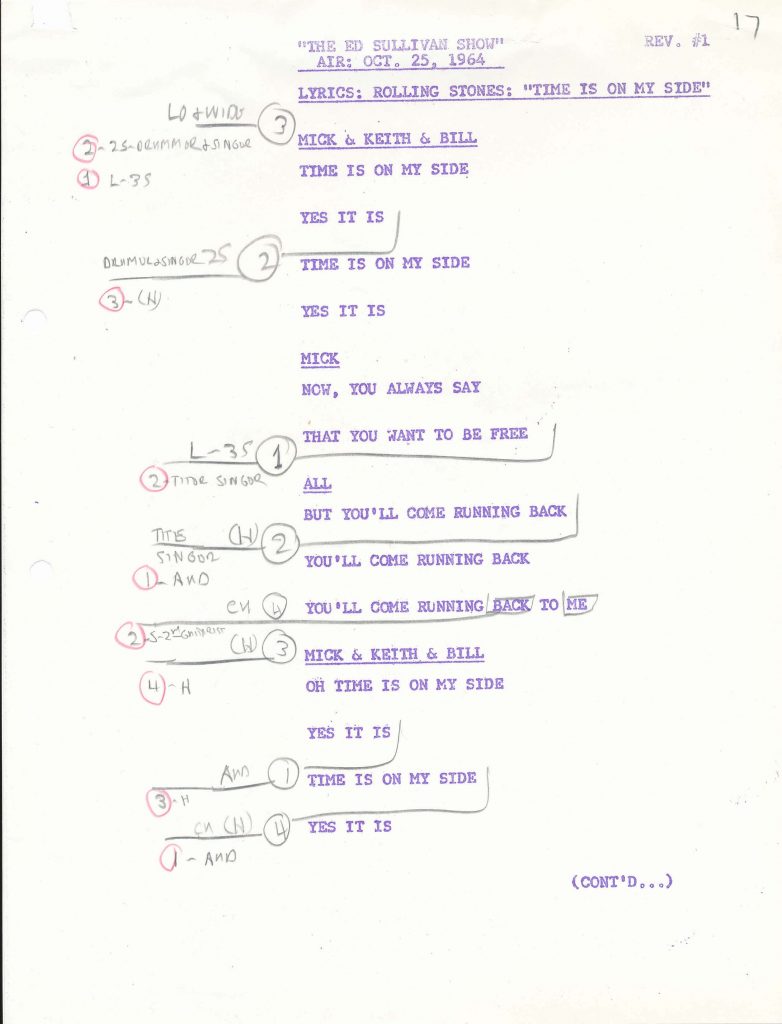 17
"THE ED SULLIVAN SHOW" REV. #1
AIR: OCT. 25, 1964
LYRICS: ROLLING STONES: "TIME IS ON MY SIDE"
LO & WIDE 3
MICK & KEITH & BILL
2 - 2S - DRUMMOR & SINGOR
TIME IS ON MY SIDE
1 L-3S
YES IT IS
DRUMMOR & SINGOR 2S 2
TIME IS ON MY SIDE
3 - (H)
YES IT IS
MICK
NOW, YOU ALWAYS SAY
THAT YOU WANT TO BE FREE
L-3S 1
2 - TITOR SINGOR
ALL
BUT YOU'LL COME RUNNING BACK
TITOR SINGOR (H) 2
YOU'LL COME RUNNING BACK
1 - AND
CU 4 YOU'LL COME RUNNING BACK TO ME
2 - S - 2nd GUITARIST
(H) 3
MICK & KEITH & BILL
4 - H
OH TIME IS ON MY SIDE
YES IT IS
AND 1
TIME IS ON MY SIDE
3 - H
CU (H) 4 YES IT IS
1 - AND
(CONT'D...)